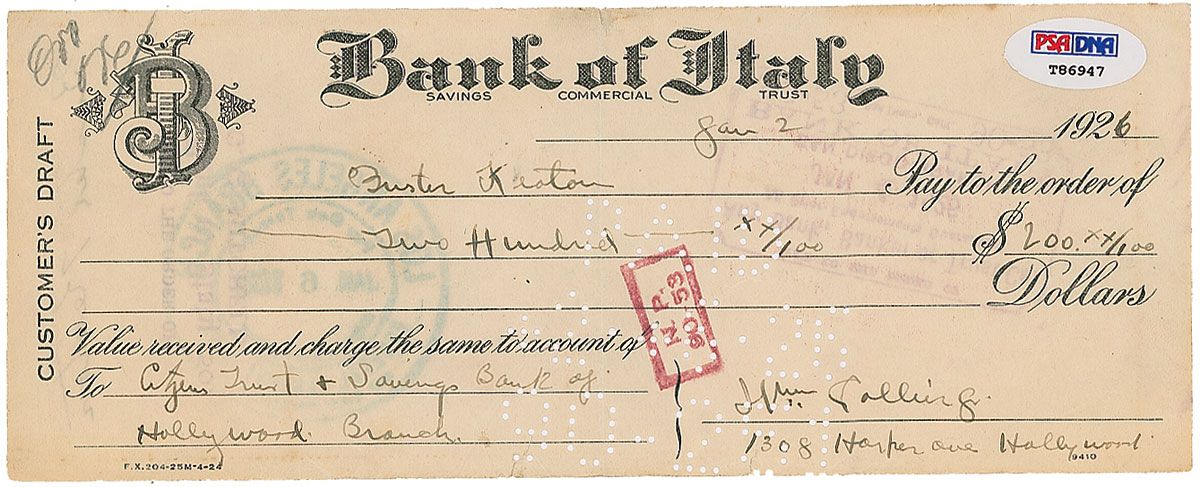 PSA DNA
T86947
B
Bank of Italy
SAVINGS COMMERCIAL TRUST
Jan 2 1926
Buster Keaton Pay to the order of
Two Hundred xx/100 $ 200.xx/100
Dollars
CUSTOMER'S DRAFT
N. P.
90-53
Value received, and charge the same to account of
To Citizens Trust & Savings Bank of
Hollywood Branch.
1308 Harper ave Hollywood
F.X.204-25M-4-24
9410